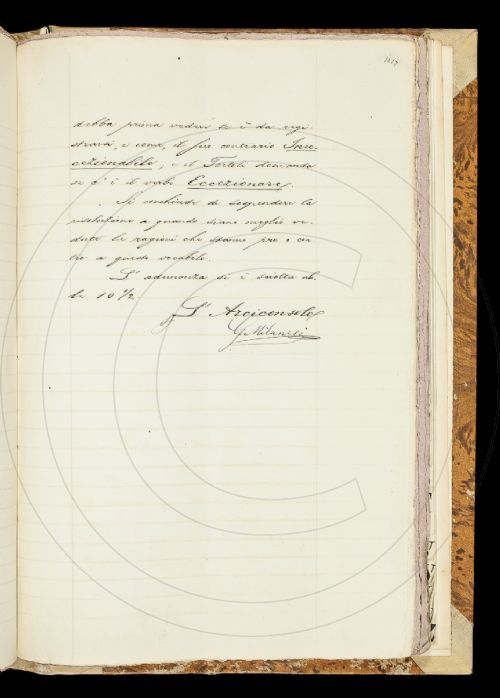 debba prima vedere se è da regi-
strarsi, e come, il suo contrario Inec-
cezionabile, e il Tortoli domanda
se c'è il verbo Eccezionare.
Si conchiude di sospendere la
risoluzione a quando siano meglio ve-
dute le ragioni che stanno pro e con-
tro a questo vocabolo.
L'adunanza si è sciolta al-
le 10 ½.
L'Arciconsolo
G. Milanesi